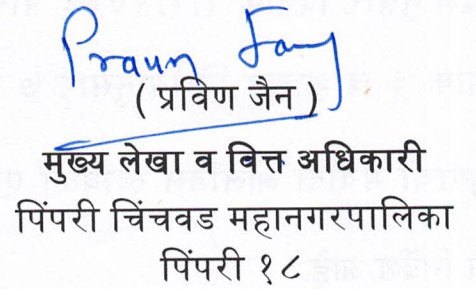 Pravin Jain
( प्रविण जैन )
मुख्य लेखा व वित्त अधिकारी
पिंपरी चिंचवड महानगरपालिका
पिंपरी १८